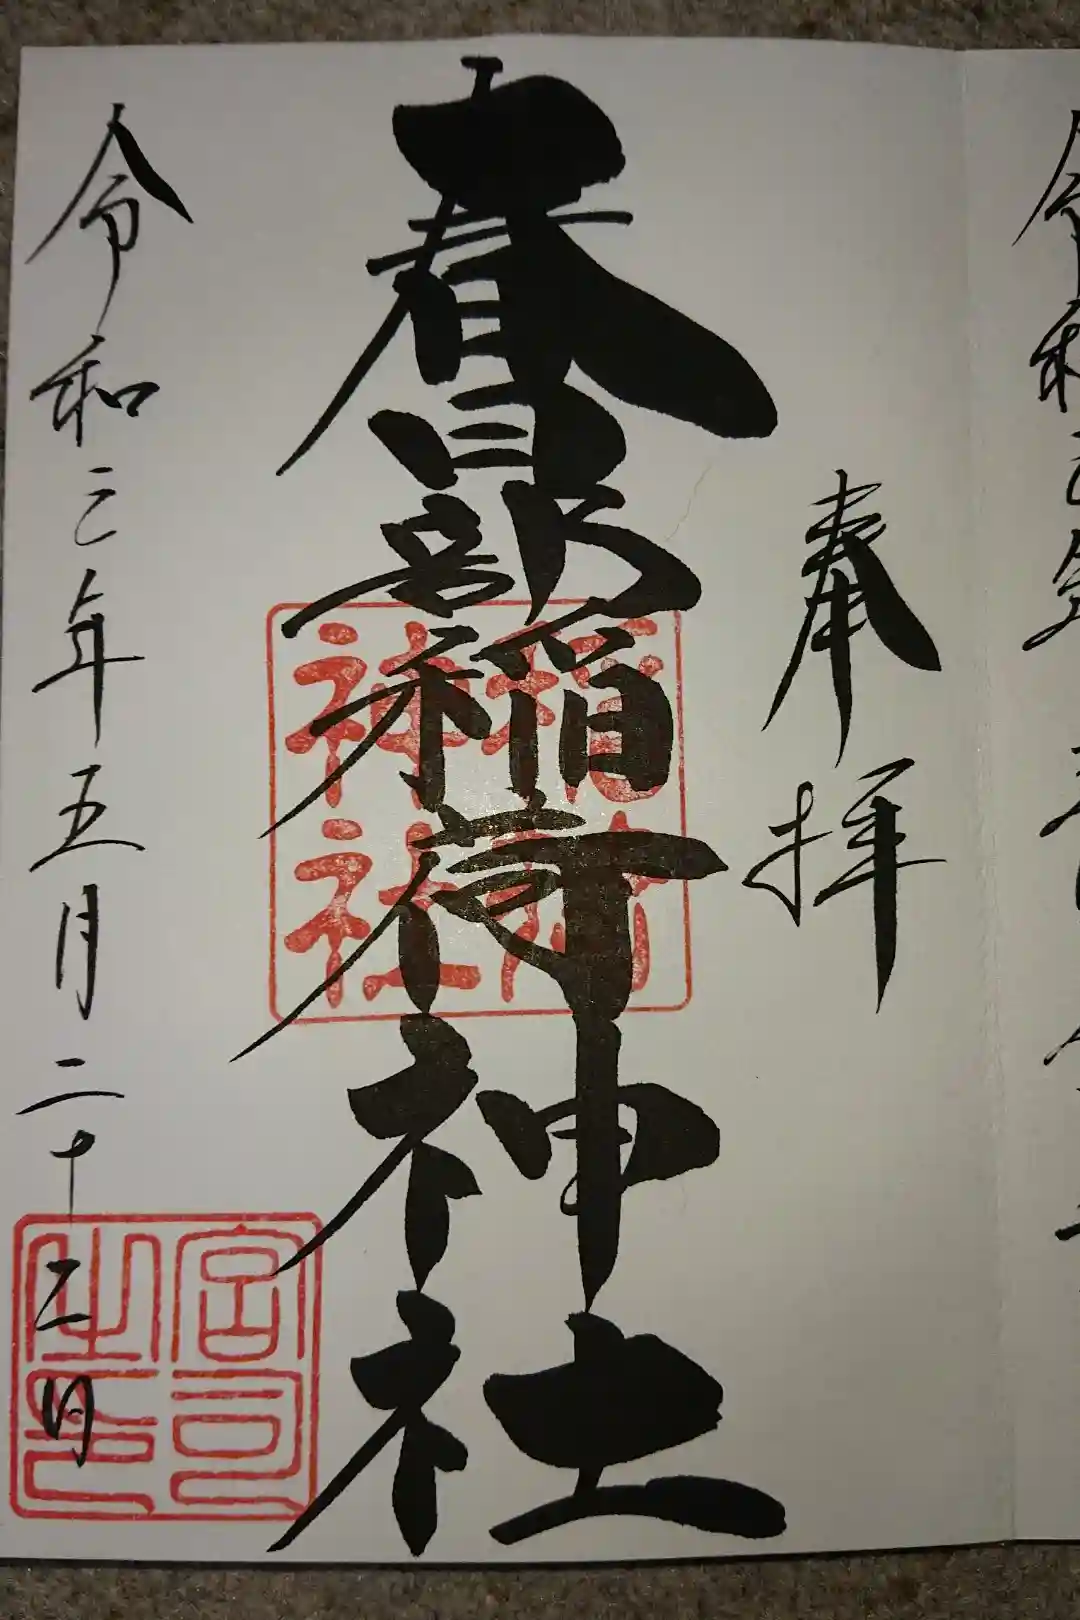 奉拝
春日部稲荷神社
稲荷神社
令和三年五月二十三日
宮司之印
令和